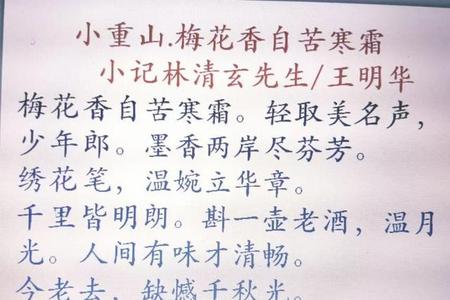 小重山.梅花香自苦寒霜
小记林清玄先生/王明华
梅花香自苦寒霜。轻取美名声，
少年郎。墨香两岸尽芬芳。
绣花笔，温婉立华章。
千里皆明朗。斟一壶老酒，温月
光。人间有味才清畅。
今老去，缺憾千秋光。